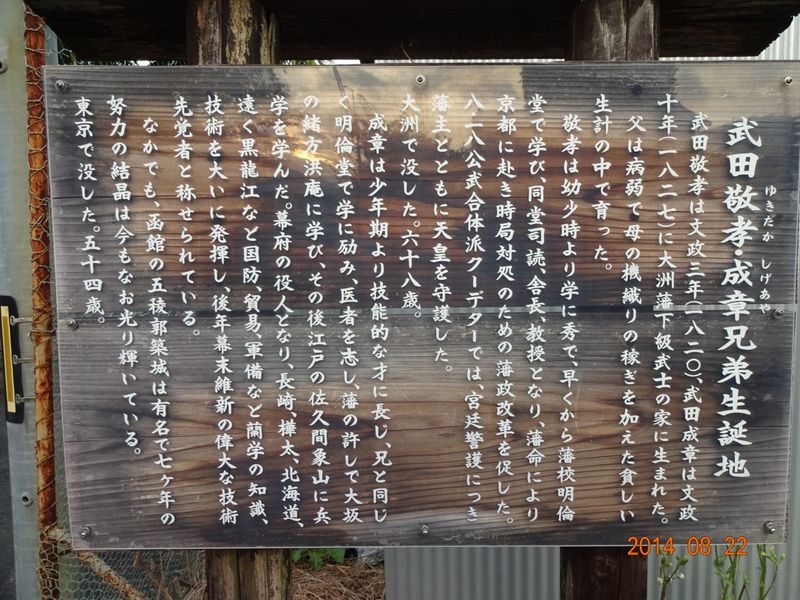 武田敬孝・成章兄弟生誕地
ゆきたか しげあや
武田敬孝は文政三年(一八二〇)、武田成章は文政
十年(一八二七)に大洲藩下級武士の家に生まれた。
父は病弱で 母の機織りの稼ぎを加えた貧しい
生計の中で育った。
敬孝は幼少時より学に秀で、早くから藩校明倫
堂で学び、同堂司読、舎長、教授となり、藩命により
京都に赴き時局対処のための藩政改革を促した。
八一八公武合体派クーデターでは、宮廷警護につき
藩主とともに天皇を守護した。
大洲で没した。六十八歳。
成章は少年期より技能的な才に長じ、兄と同じ
く明倫堂で学に励み、医者を志し、藩の許しで大坂
の緒方洪庵に学び、その後江戸の佐久間象山に兵
学を学んだ。幕府の役人となり、長崎、樺太、北海道、
遠く黒龍江など国防、貿易、軍備など蘭学の知識、
技術を大いに発揮し、後年幕末維新の偉大な技術
先覚者と称せられている。
なかでも、函館の五稜郭築城は有名で七ヶ年の
努力の結晶は今もなお光り輝いている。
東京で没した。五十四歳。
2014 08 22